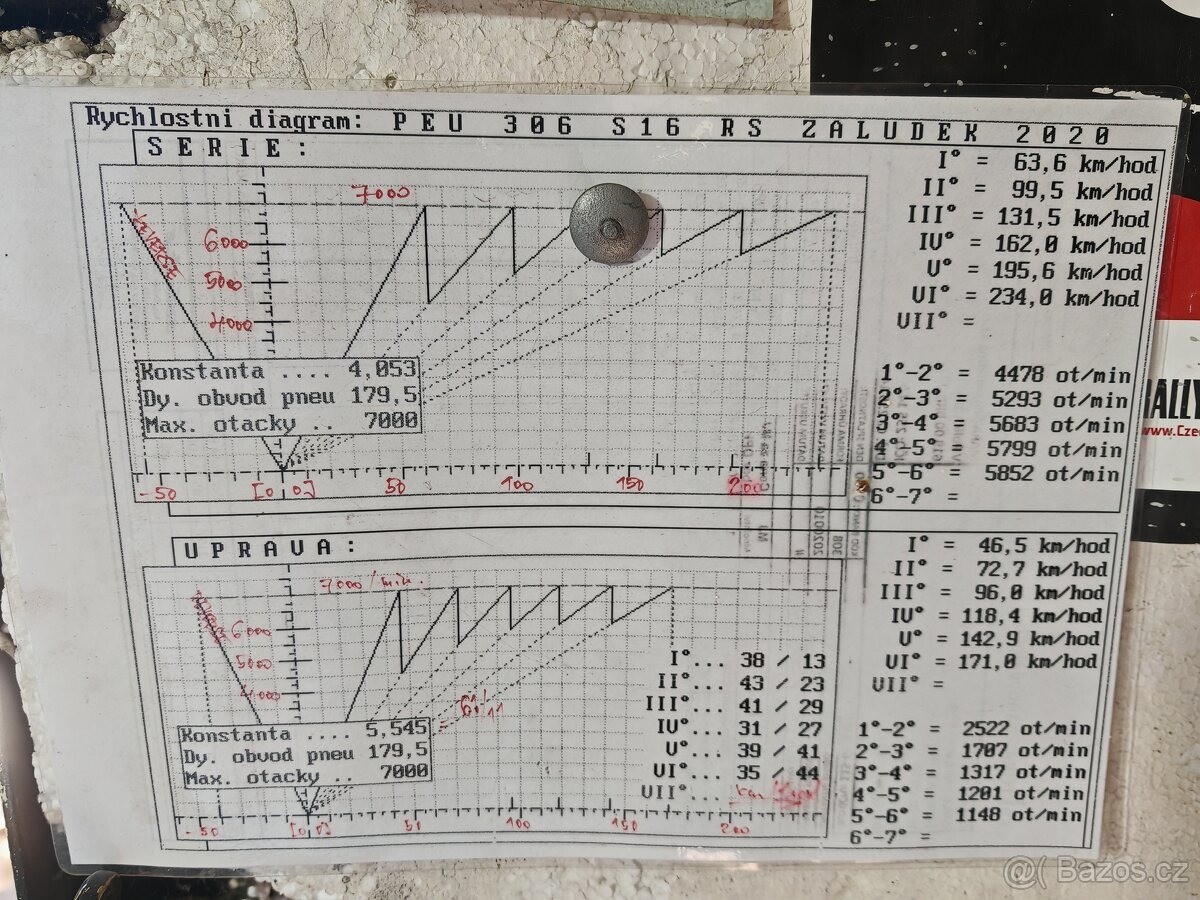 Rychlostni diagram: PEU 306 S16 RS ZALUDEK 2020
SERIE:
I° = 63,6 km/hod
II° = 99,5 km/hod
III° = 131,5 km/hod
IV° = 162,0 km/hod
V° = 195,6 km/hod
VI° = 234,0 km/hod
VII° =
7000
REVERSE
6000
5000
4000
Konstanta .... 4,053
Dy. obvod pneu 179,5
Max. otacky .. 7000
-50 [0,0] 50 100 150 200
1°-2° = 4478 ot/min
2°-3° = 5293 ot/min
3°-4° = 5683 ot/min
4°-5° = 5799 ot/min
5°-6° = 5852 ot/min
6°-7° =
UPRAVA:
I° = 46,5 km/hod
II° = 72,7 km/hod
III° = 96,0 km/hod
IV° = 118,4 km/hod
V° = 142,9 km/hod
VI° = 171,0 km/hod
VII° =
7000/min.
6000
5000
4000
I°... 38 / 13
II°... 43 / 23
III°... 41 / 29
IV°... 31 / 27
V°... 39 / 41
VI°... 35 / 44
VII°...
Konstanta .... 5,545 = 61:11
Dy. obvod pneu 179,5
Max. otacky .. 7000
-50 [0,0] 50 100 150 200
1°-2° = 2522 ot/min
2°-3° = 1707 ot/min
3°-4° = 1317 ot/min
4°-5° = 1201 ot/min
5°-6° = 1148 ot/min
6°-7° =
RALLY
www.Cze
@( Bazos.cz